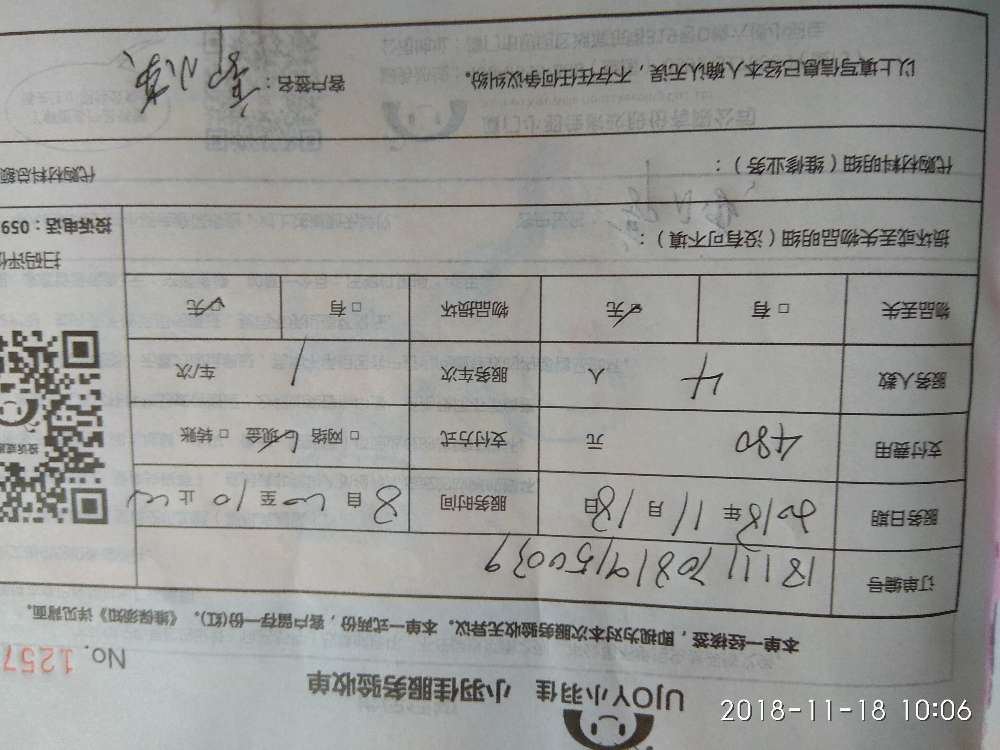 UJOY小羽佳 小羽佳服务验收单
No. 1257
本单一经核签，即视为对本次服务验收无异议。本单一式两份，客户留存一份(红)。《维保须知》详见背面。
订单编号 1811170819150039
服务日期 2018年11月18日 服务时间 8自00至10止00
支付费用 480 元 支付方式 □网络 ☑现金 □转账
服务人数 4 人 服务车次 1 车/次
物品丢失 □有 ☑无 物品损坏 □有 ☑无
损坏或丢失物品明细（没有可不填）：
扫码评价
投诉电话：059
代购材料明细（维修业务）：
代购材料总额
以上填写信息已经本人确认无误，不存在任何争议纠纷。 客户签名：
2018-11-18 10:06